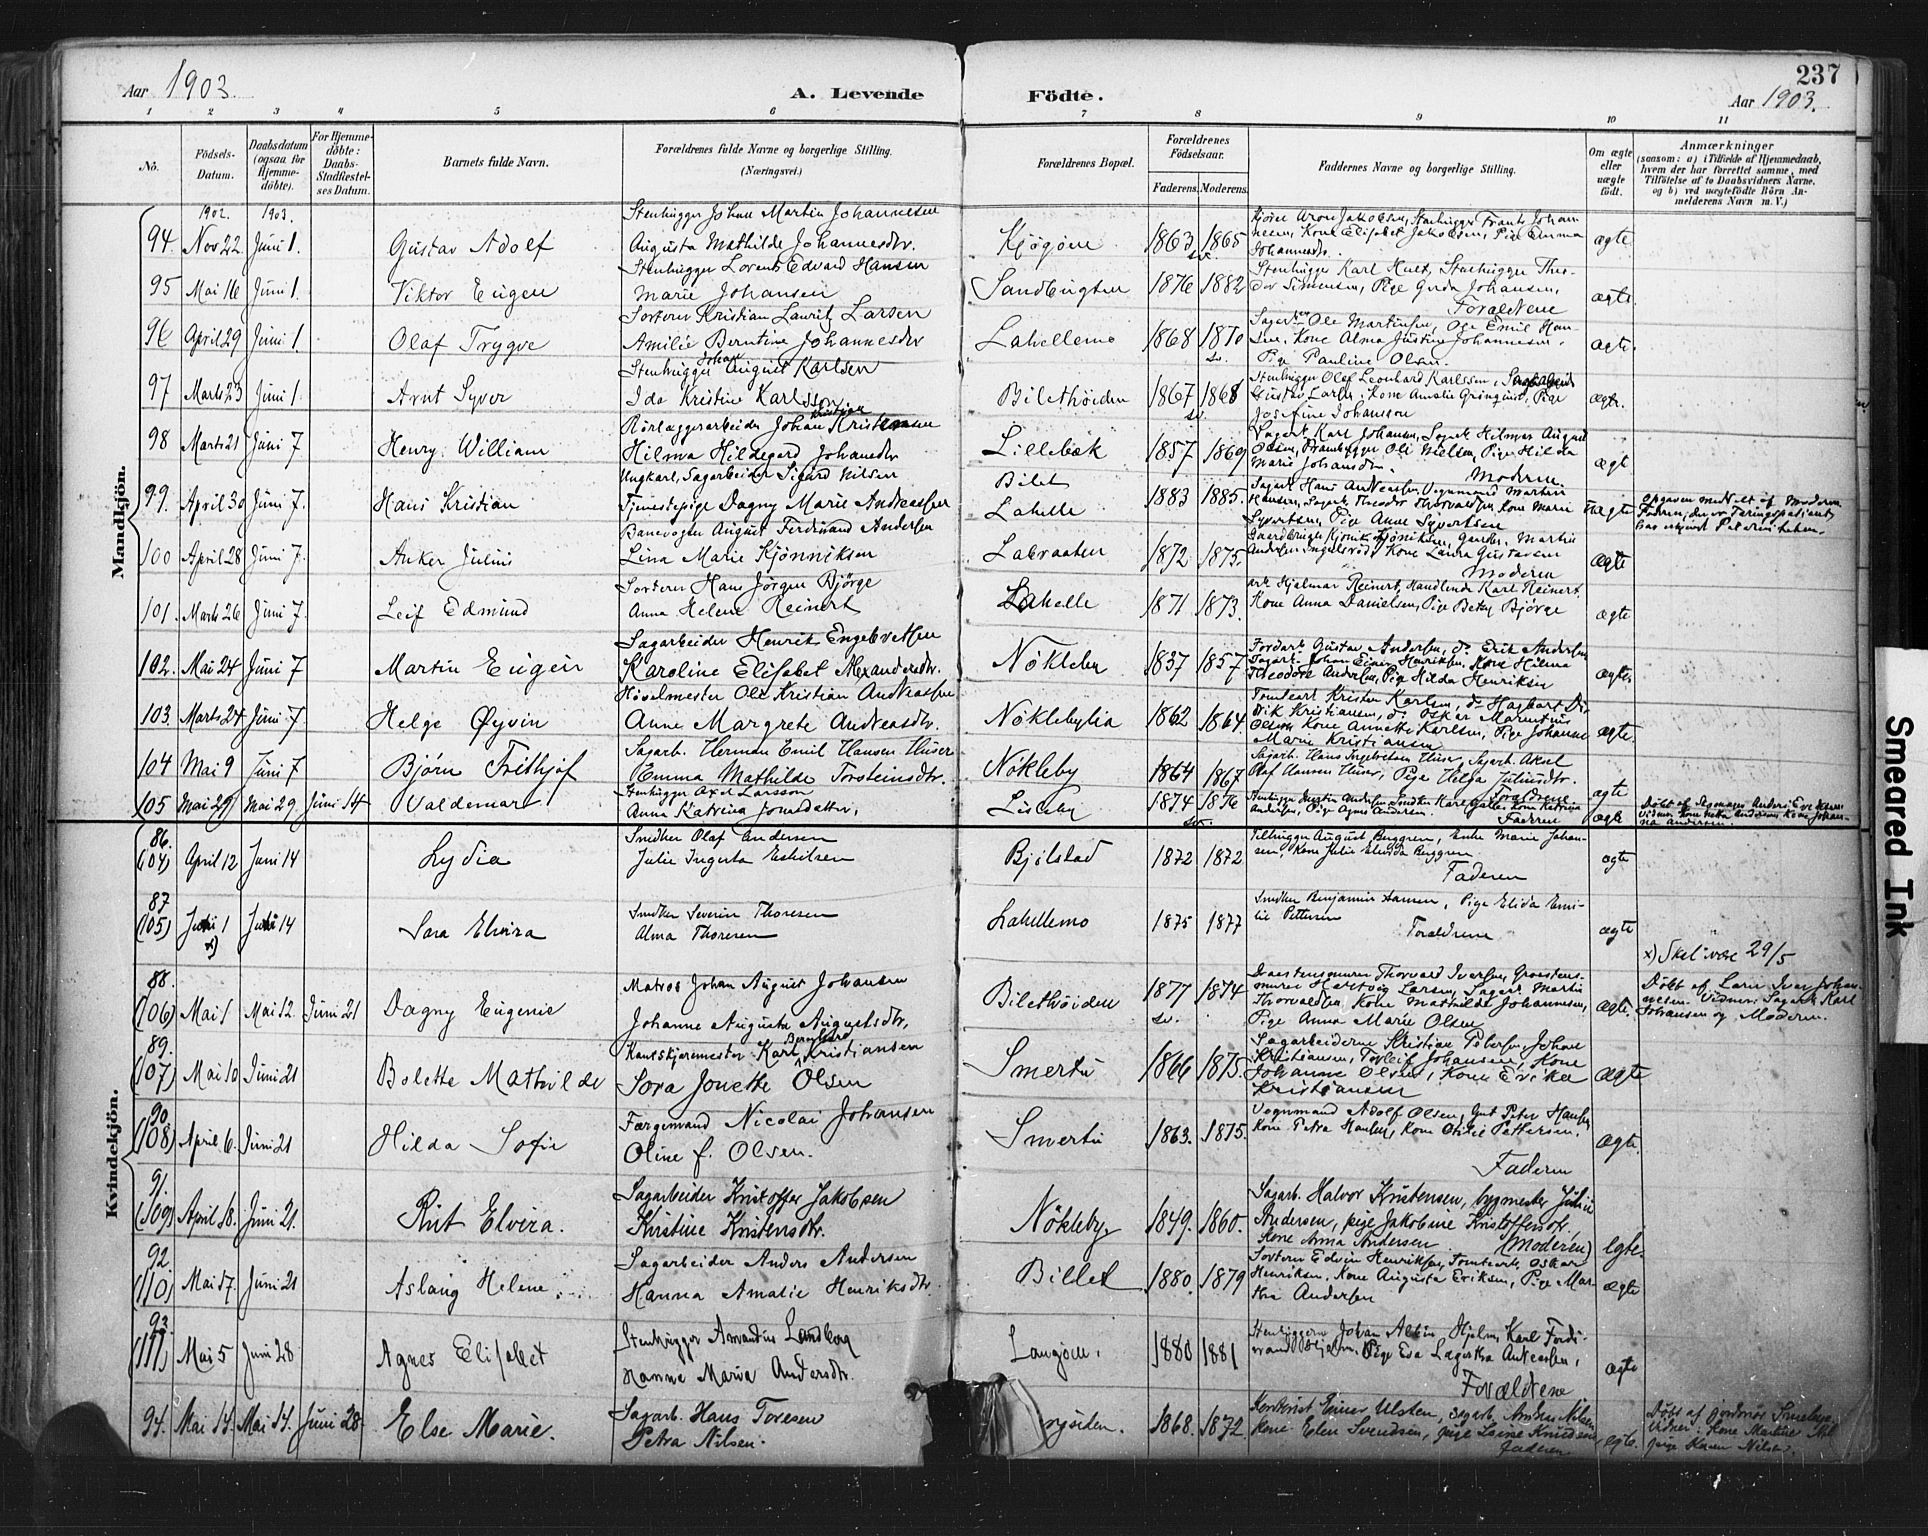 Aar 1903.
A. Levende Födte.
237
Aar 1903.
1 2 3 4 5 6 7 8 9 10 11
No. Födsels-Datum. Daabsdatum (ogsaa for Hjemmedöbte). For Hjemmedöbte: Daabs-Stadfæstelses Datum. Barnets fulde Navn. Forældrenes fulde Navne og borgerlige Stilling. (Næringsvei.) Forældrenes Bopæl. Forældrenes Födselsaar. Faderens. Moderens. Faddernes Navne og borgerlige Stilling. Om ægte eller uægte födt. Anmærkninger (saasom: a) i Tilfælde af Hjemmedaab, hvem der har forrettet samme, med Tilföielse af to Daabsvidners Navne, og b) ved uægtefödte Börn Anmelderens Navn m. V.)
Mandkjön.
1902. 1903.
94. Nov 22 Juni 1. Gustav Adolf
Stenhugger Johan Martin Johannesen
Augusta Mathilde Johannesdtr.
Kjøgøen 1863 sv. 1865 ægte
Stenhugger Frantz Johannesen, Kone Elisabet Jakobsen, Pige Emma Johannesdtr.
95 Mai 16 Juni 1. Viktor Eugen
Stenhugger Lorents Edvard Hansen
Marie Johansen
Sandbugten 1876 1882 ægte.
Stenhugger Karl Hult, Stenhugger Theodor Simensen, Pige Gerda Johansen,
Forældrene
96 April 29 Juni 1. Olaf Trygve
Sorterer Kristian Lauritz Larsen
Amilie Berntine Johannesdtr
Lahellemo 1868 1870 sv. ægte.
Ole Martinsen, Emil Hansen, Kone Alma Justine Johannesen,
Pige Pauline Olsen
97 Marts 23 Juni 1 Arnt Syver
Stenhugger Johan August Karlsen
Ida Kristine Karlsson
Bilethöiden 1867 sv. 1868 ægte.
Stenhugger Olaf Leonhard Karlssen,
Gustav Larsen, Kone Amalie Grönquist, Pige
Josefine Johansson
98 Marts 21 Juni 7 Henry William
Rörlæggerarbeider Johan Kristian
Hilma Hildegard Johansdtr
Lillebæk 1857 1869 ægte
Sagarb. Karl Johansen, Sagarb. Hilmar August
Olsen, Oli Nielsen, Pige Hilda
Marie Johansdtr. Moderen
99. April 30 Juni 7. Hans Kristian
Ungkarl, Sagarbeider Sigurd Nilsen
Tjenestepige Dagny Marie Andreassen
Bilet
Lahelle 1883 1885. Uægte
Sagarb. Hans Andreassen, Vognmand Martin
Hansen, Sagarb. Theodor Thorvaldsen, Kone Marie
Syvertsen, Pige Anne Syvertsen
Opgaven meddelt af Moderen
100 April 28 Juni 7. Anker Julius
Banevogter August Ferdinand Andersen
Lina Marie Kjönniksen
Labraaten 1872 1875. ægte
Kone Laura Gustavsen
Moderen
101. Marts 26 Juni 7. Leif Edmund
Sorterer Hans Jörgen Bjørge
Anna Helene Reinert
Lahelle 1871 1873. ægte
Hjalmar Reinert, Handlende Karl Reinert,
Kone Anna Danielsen, Pige Betsy Bjørge
102. Mai 24 Juni 7 Martin Eugen
Sagarbeider Henrik Engebretsen
Karoline Elisabet Alexandersdtr.
Nökleby 1837 1857 ægte.
Gustav Andersen, do. Erik Andersen
Sagarb. Johan Einar Henriksen, Kone Hilma
Theodore Andersen, Pige Hilda Henriksen
103. Marts 24 Juni 7 Helge Øyvin
Hövelmester Ole Kristian Andreassen
Anne Margrete Andreasdtr.
Nöklebylia 1862 1864. ægte.
Tomtearb. Kristen Karlsen,
Kristiansen, do. Oskar Marentius
Olsen, Kone Annette Karlsen, Pige Johanne
Marie Kristiansen
104 Mai 9 Juni 7 Bjørn Frithjof
Sagarb. Herman Emil Hansen Huser
Emma Mathilde Torsteinsdtr.
Nökleby 1864 1867 ægte
Sagarb. Hans Ingebretsen Huser, Sagarb. Aksel
Olaf Hansen Huser, Pige Helga Juliusdtr.
Forældrene
105 Mai 29 Mai 29 Juni 14 Valdemar
Stenhugger Axel Larsson
Anna Katrina Jonasdatter,
Lisleby 1874 sv. 1876 ægte
Faderen
Kvindekjön.
86.
(104) April 12 Juni 14 Lydia
Smedker Olaf Andersen
Julie Ingerta Eskilsen
Bjölstad 1872 1872 ægte
August Berggren, Enke Marie Johansen, Kone Julie Elvida Berggren
Faderen
87
(105) Juni 1 x) Juni 14 Sara Elvira
Smedker Severin Thoresen
Alma Thoresen
Lahellemo 1875 1877 ægte
Smedker Benjamin Hansen, Pige Elida Emilie Pettersen
Forældrene
x) Skal være 29/5
88.
(106) Mai 1 Mai 12. Juni 21 Dagny Eugenie
Matros Johan August Johansen
Johanne Augusta Augustsdtr.
Bilethöiden 1877 sv. 1874 ægte.
Thorvald Iversen,
Hartvig Larsen, Sagarb. Martin
Thorvaldsen, Kone Mathilde Johannesen,
Pige Anna Marie Olsen
Döbt af Iver Johannesen. Vidner: Sagarb. Karl
Johansen og Moderen.
89.
(107) Mai 10 Juni 21 Bolette Mathilde
Kantskjærmester Karl Bernhard Kristiansen
Sora Jonette Olsen
Smertu 1866 1875. ægte
Sagarbeiderne Kristian Petersen, Johan
Kristiansen, Torleif Johansen, Kone
Johanne Olsen, Kone Erika
Kristiansen
90.
(108) April 6. Juni 21 Hilda Sofie
Færgemand Nicolai Johansen
Oline f. Olsen.
Smertu 1863. 1875. ægte.
Vognmand Adolf Olsen, Gmt Peter Hansen,
Kone Petra Hansen, Kone Otilie Pettersen,
Faderen
91.
(109) April 18. Juni 21. Rut Elvira.
Sagarbeider Kristoffer Jakobsen
Kristine Kristensdtr.
Nökleby 1849. 1860. Egte.
Sagarb. Halvor Kristensen, bygmester Julius
Andersen, pige Jakobine Kristoffersdtr,
Kone Anna Andersen (Moderen)
92.
(110) Mai 7. Juni 21 Aslaug Helene
Sagarbeider Anders Andersen
Hanna Amalie Henriksdtr.
Billet 1880. 1879 ægte
Sorterer Edvin Henriksen, Tomtearb. Oskar
Henriksen, Kone Augusta Eriksen, Pige Martha Andersen
93.
(111) Mai 5 Juni 28 Agnes Elisabet
Stenhugger Amandus Lundberg
Hanna Maria Andersdtr.
Langöen. 1880 1881 ægte
Stenhuggerne Johan Albin Hjelm, Karl Ferdinand Hjelm, Pige Eva Andreassen,
Forældrene
94. Mai 14. Mai 14. Juni 28 Else Marie.
Sagarb. Hans Toresen
Petra Nilsen.
1868. 1872 egte.
Einar Ulsten, sagarb. Anders Nilsen
Kone Elen Svendsen, pige Laina Knudsen
Faderen
Döbt af
Vidner: Kone Martine
pige Karen Nilsen.
Smeared Ink